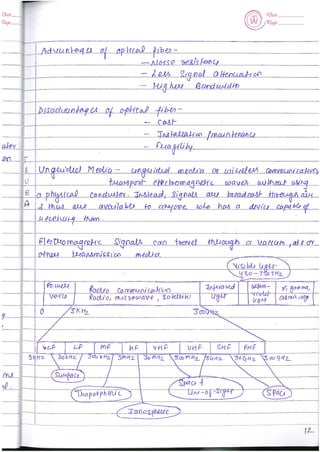 Advantages of optical fiber -
- Noise resistance
- Less Signal attenuation
- Higher Bandwidth
Disadvantages of optical fiber -
- Cost
- Installation / maintenance
- Fragility.
Unguided Media - unguided media or wireless communication,
transport electromagnetic waves without using
a physical conductor. Instead, Signals are broadcast through air
& thus are available to anyone who has a device capable of
receiving them.
Electromagnetic Signals can travel through a vacuum, air or
other transmission media.
Visible light
430 - 750 THz
Power & voice
Radio Communication
Radio, microwave, Satellite
Infrared light
Ultra-violet light
X, gamma,
0 3KHz 300GHz
VLF LF MF HF VHF UHF SHF EHF
3KHz 30KHz 300KHz 3MHz 30MHz 300MHz 3GHz 30GHz 300GHz
Surface
Troposphelic
Ionospheric
Space &
Line-of-Sight
Space
12